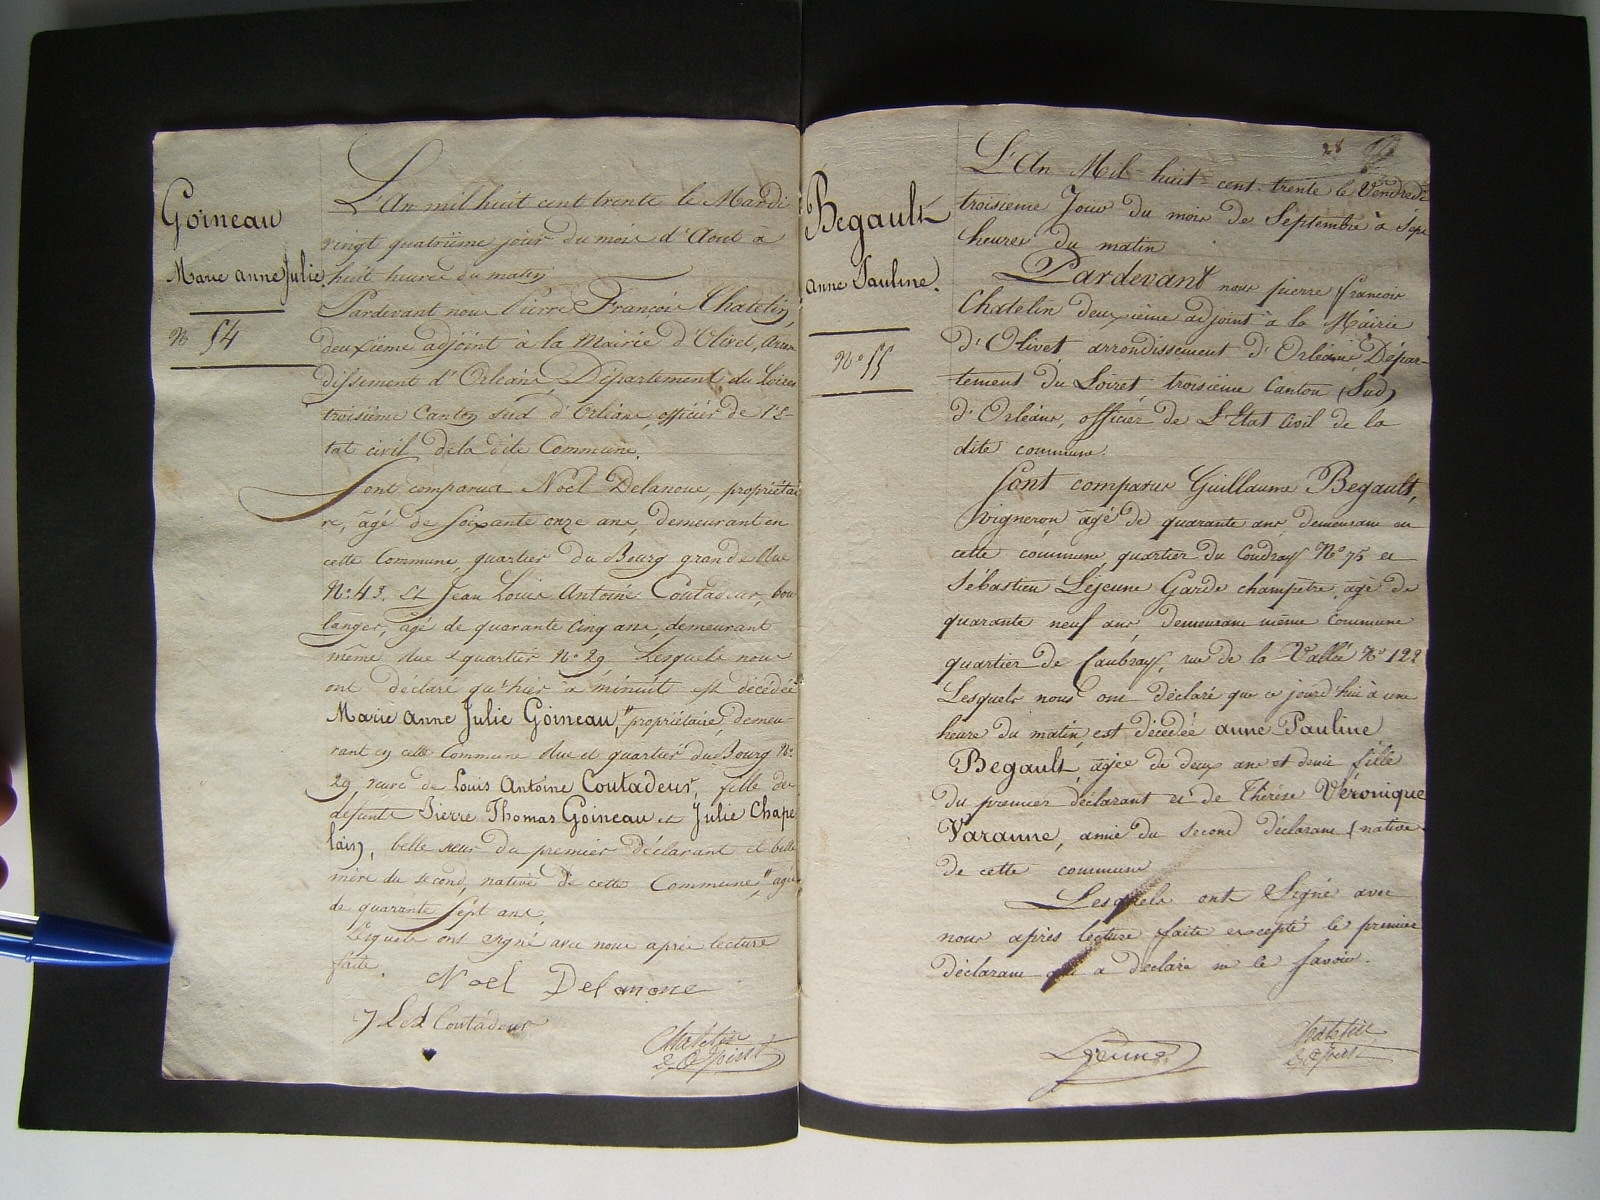 Goineau
Marie anne Julie
N 54
L'An mil huit cent trente le Mardi
vingt quatrième jour du mois d'Aout à
huit heures du matin
Pardevant nous Pierre François Chatelin,
deuxième adjoint à la Mairie d'Olivet, Arron
dissement d'Orléans, Département du Loiret
troisième Canton sud d'Orléans, officier de l'E-
tat civil de la dite Commune.
Sont comparus Noël Delanoue, propriétai
re, âgé de soixante onze ans, demeurant en
cette Commune, quartier du Bourg grande Rue
N° 43. Et Jean Louis Antoine Coutadeur, bou
langer, âgé de quarante cinq ans, demeurant
même Rue & quartier N° 29. Lesquels nous
ont déclaré qu'hier à minuit est décédée
Marie Anne Julie Goineau, propriétaire, demeu-
rant en cette Commune Rue et quartier du Bourg N°
29, veuve de Louis Antoine Coutadeur, fille de
défunts Pierre Thomas Goineau et Julie Chape
lain, belle sœur du premier déclarant et belle
mère du second, native de cette Commune, agée
de quarante sept ans,
Lesquels ont signé avec nous après lecture
faite.
Noel Delanoue
J L A Coutadeur
Chatelin
2e adjoint
28
Begault
anne Pauline.
N° 55
L'An Mil huit cent trente le Vendredi
troisième Jour du mois de Septembre à sept
heures du matin
Pardevant nous pierre françois
Chatelin deuxième adjoint à la Mairie
d'Olivet arrondissement d'Orléans Dépar-
tement du Loiret troisième Canton (Sud)
d'Orléans, officier de L'Etat Civil de la
dite commune.
Sont comparus Guillaume Begault,
vigneron âgé de quarante ans demeurant en
cette commune, quartier du Coudray N° 75 et
Sébastien Léjeune Garde champetre âgé de
quarante neuf ans, demeurant même Commune
quartier de Caubray, rue de la Vallée N° 122
Lesquels nous ont déclaré que ce jourd'hui à une
heure du matin, est décédée anne Pauline
Begault, agée de deux ans et demie fille
du premier déclarant et de Thérèse Véronique
Varanne, amie du second déclarant, native
de cette commune
Lesquels ont Signé avec
nous après lecture faite excepté le premier
déclarant qui a déclaré ne le savoir.
Lejeune
Chatelin
2e adjoint